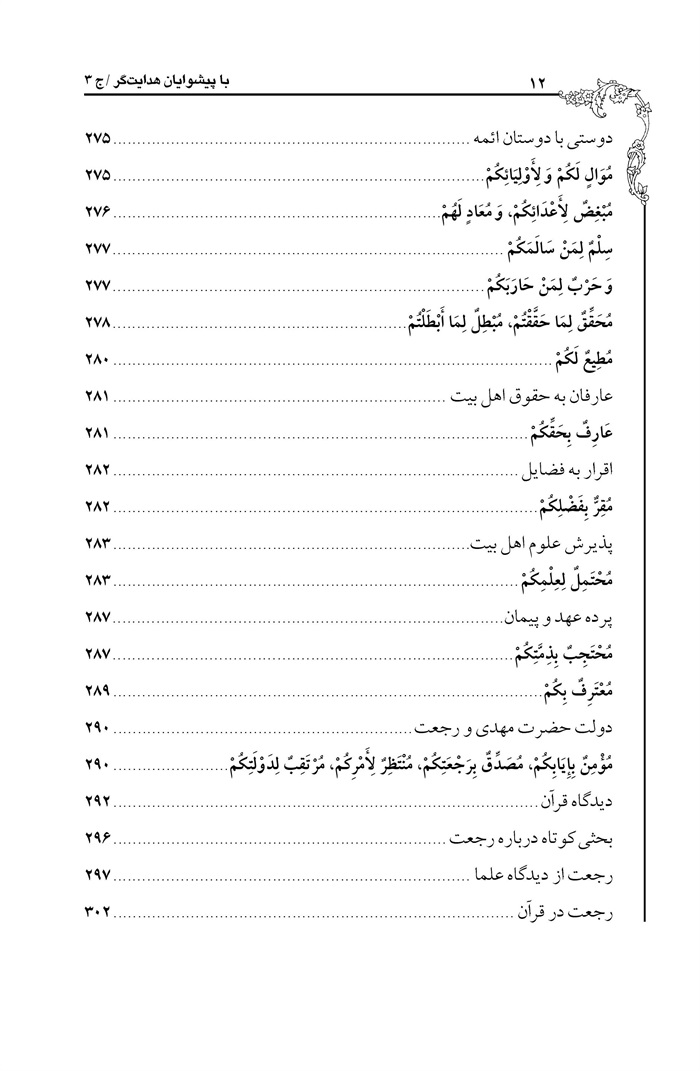 ۱۲ با پیشوایان هدایت‌گر /ج ۳
دوستی با دوستان ائمه ........ ۲۷۵
مُوَالٍ لَكُمْ وَ لِأَوْلِيَائِكُمْ ........ ۲۷۵
مُبْغِضٌ لِأَعْدَائِكُمْ، وَ مُعَادٍ لَهُمْ ........ ۲۷۶
سِلْمٌ لِمَنْ سَالَمَكُمْ ........ ۲۷۷
وَ حَرْبٌ لِمَنْ حَارَبَكُمْ ........ ۲۷۷
مُحَقِّقٌ لِمَا حَقَّقْتُمْ، مُبْطِلٌ لِمَا أَبْطَلْتُمْ ........ ۲۷۸
مُطِيعٌ لَكُمْ ........ ۲۸۰
عارفان به حقوق اهل بیت ........ ۲۸۱
عَارِفٌ بِحَقِّكُمْ ........ ۲۸۱
اقرار به فضایل ........ ۲۸۲
مُقِرٌّ بِفَضْلِكُمْ ........ ۲۸۲
پذیرش علوم اهل بیت ........ ۲۸۳
مُحْتَمِلٌ لِعِلْمِكُمْ ........ ۲۸۳
پرده عهد و پیمان ........ ۲۸۷
مُحْتَجِبٌ بِذِمَّتِكُمْ ........ ۲۸۷
مُعْتَرِفٌ بِكُمْ ........ ۲۸۹
دولت حضرت مهدی و رجعت ........ ۲۹۰
مُؤْمِنٌ بِإِيَابِكُمْ، مُصَدِّقٌ بِرَجْعَتِكُمْ، مُنْتَظِرٌ لِأَمْرِكُمْ، مُرْتَقِبٌ لِدَوْلَتِكُمْ ........ ۲۹۰
دیدگاه قرآن ........ ۲۹۲
بحثی کوتاه درباره رجعت ........ ۲۹۶
رجعت از دیدگاه علما ........ ۲۹۷
رجعت در قرآن ........ ۳۰۲